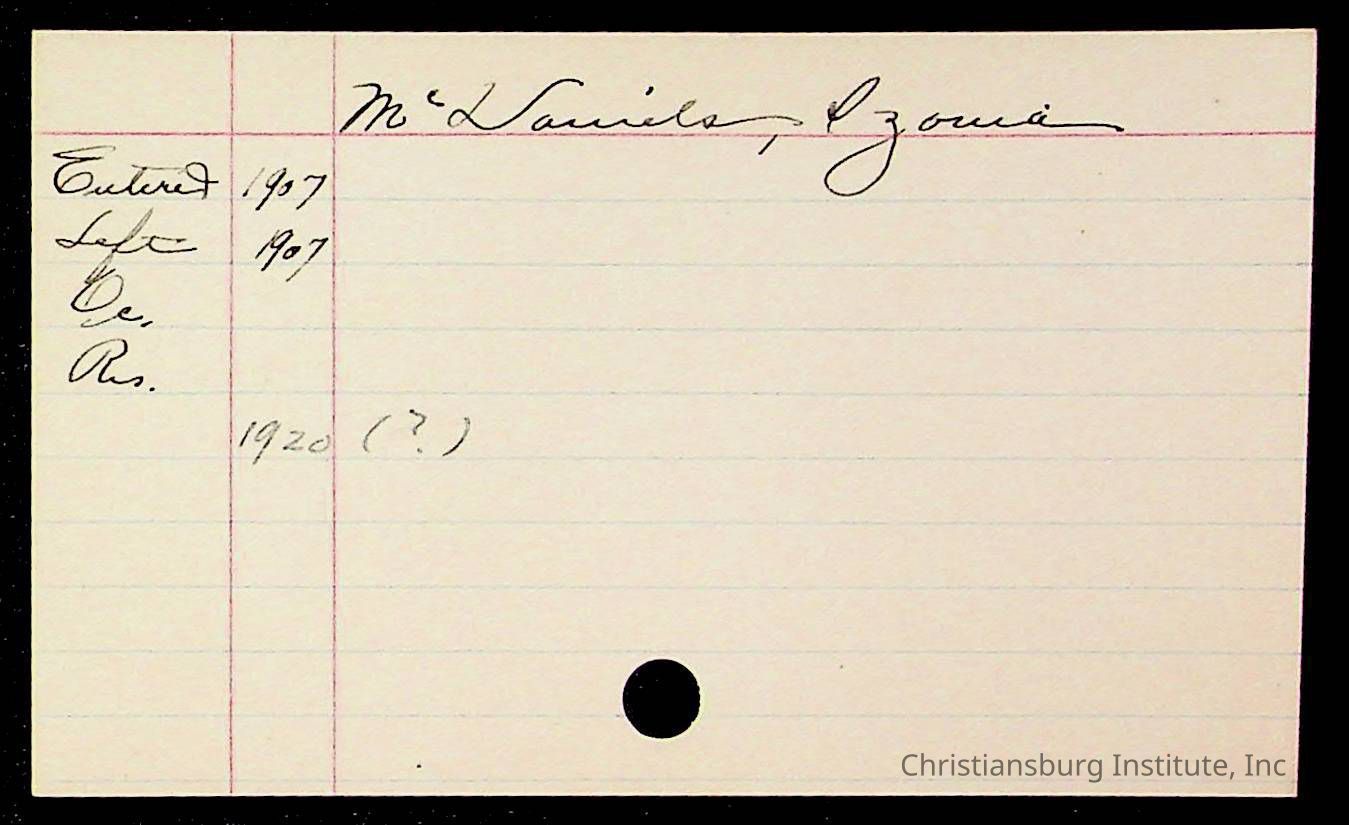 McDaniels, Izonia
Entered 1907
Left 1907
Oc.
Res.
1920 (?)
Christiansburg Institute, Inc